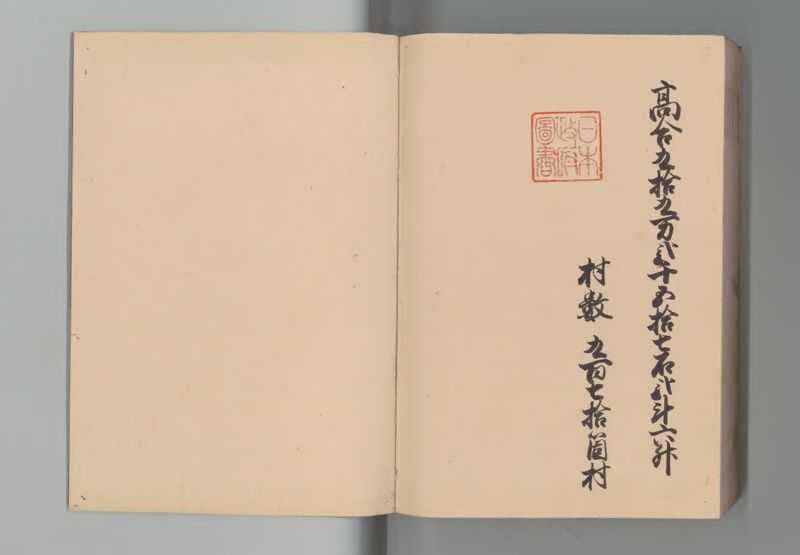 高合九拾九万弐千五拾七石弐斗六升
村数 九百七拾箇村
日本
政府
圖書